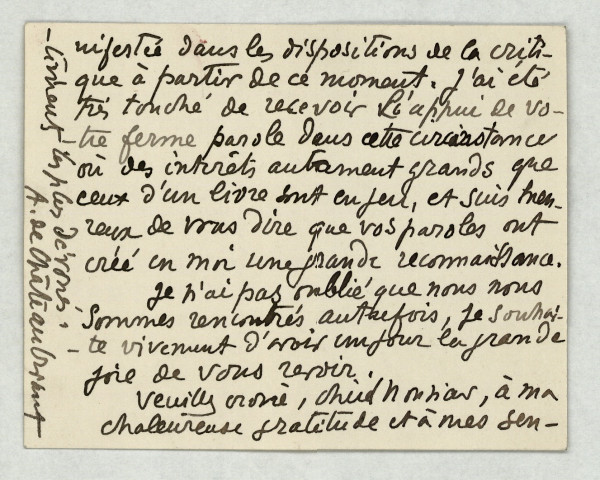 nifestée dans les dispositions de la criti-
que à partir de ce moment. J'ai été
très touché de recevoir l'appui de vo-
tre ferme parole dans cette circonstance
où des intérêts autrement grands que
ceux d'un livre sont en jeu, et suis heu-
reux de vous dire que vos paroles ont
créé en moi une grande reconnaissance.
Je n'ai pas oublié que nous nous
sommes rencontrés autrefois, je souhai-
te vivement d'avoir un jour la grande
joie de vous revoir.
Veuillez croire, cher Monsieur, à ma
chaleureuse gratitude et à mes sen-
-timents les plus dévoués.
A. de Châteaubriant